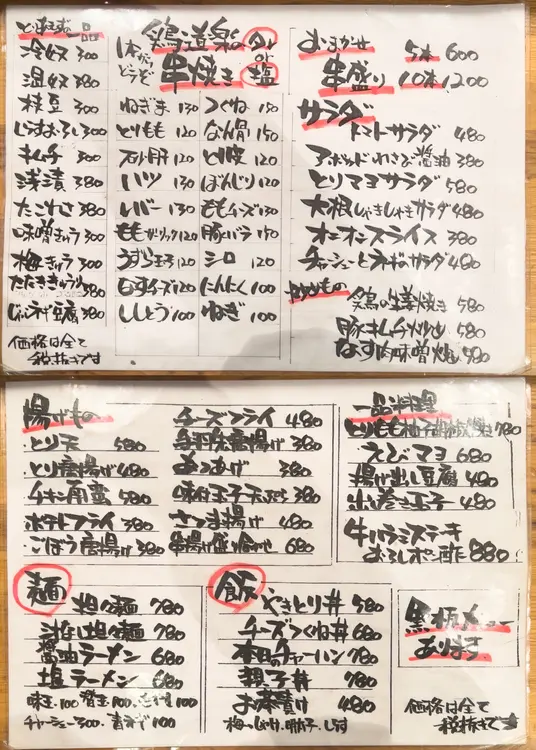 とりあえず一品
冷奴 300
温奴 380
枝豆 300
じゃこおろし 300
キムチ 300
浅漬 380
たこわさ 380
味噌きゅう 300
梅きゅう 300
たたききゅうり 380
じゃこネギ豆腐 380
価格は全て
税抜きです
1本からどうぞ
鶏道楽の
串焼き
タレ or 塩
ねぎま 130
とりもも 120
砂肝 120
ハツ 130
レバー 130
ももガーリック 120
うずら玉子 120
なすチーズ 120
ししとう 100
つくね 150
なん骨 150
とり皮 120
ぼんじり 120
ももチーズ 130
豚バラ 150
シロ 120
にんにく 100
ねぎ 100
おまかせ 5本 600
串盛り 10本 1200
サラダ
トマトサラダ 480
アボカドわさび醤油 380
とりマヨサラダ 580
大根しゃきしゃきサラダ 480
オニオンスライス 380
チャーシューとネギのサラダ 480
炒めもの
鶏の生姜焼き 580
豚キムチ炒め 580
なす肉味噌炒め 480
揚げもの
とり天 580
とり唐揚げ 480
チキン南蛮 580
ポテトフライ 380
ごぼう唐揚げ 380
チーズフライ 480
手羽先唐揚げ 380
あつあげ 380
味付玉子天ぷら 380
さつま揚げ 480
串揚げ盛り合わせ 680
一品料理
とりもも柚子胡椒焼き 780
えびマヨ 680
揚げ出し豆腐 480
出し巻き玉子 480
牛ハラミステーキ
おろしポン酢 880
麺
担々麺 780
汁なし担々麺 780
醤油ラーメン 680
塩ラーメン 680
味玉・100 替玉・100
チャーシュー300・青ネギ100
飯
やきとり丼 580
チーズつくね丼 680
本日のチャーハン 780
親子丼 780
お茶漬け 480
梅・しゃけ・明太子・しらす
黒板メニュー
あります
価格は全て
税抜きです